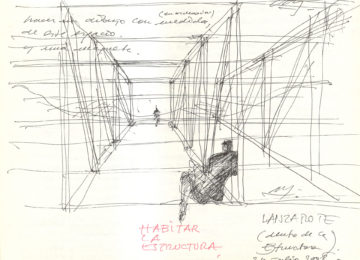 (continuación)
hacer un dibujo con medidas
de este espacio
y una maqueta.
HABITAR
LA
ESTRUCTURA
LANZAROTE
(dentro de la
Estructura
julio 2008